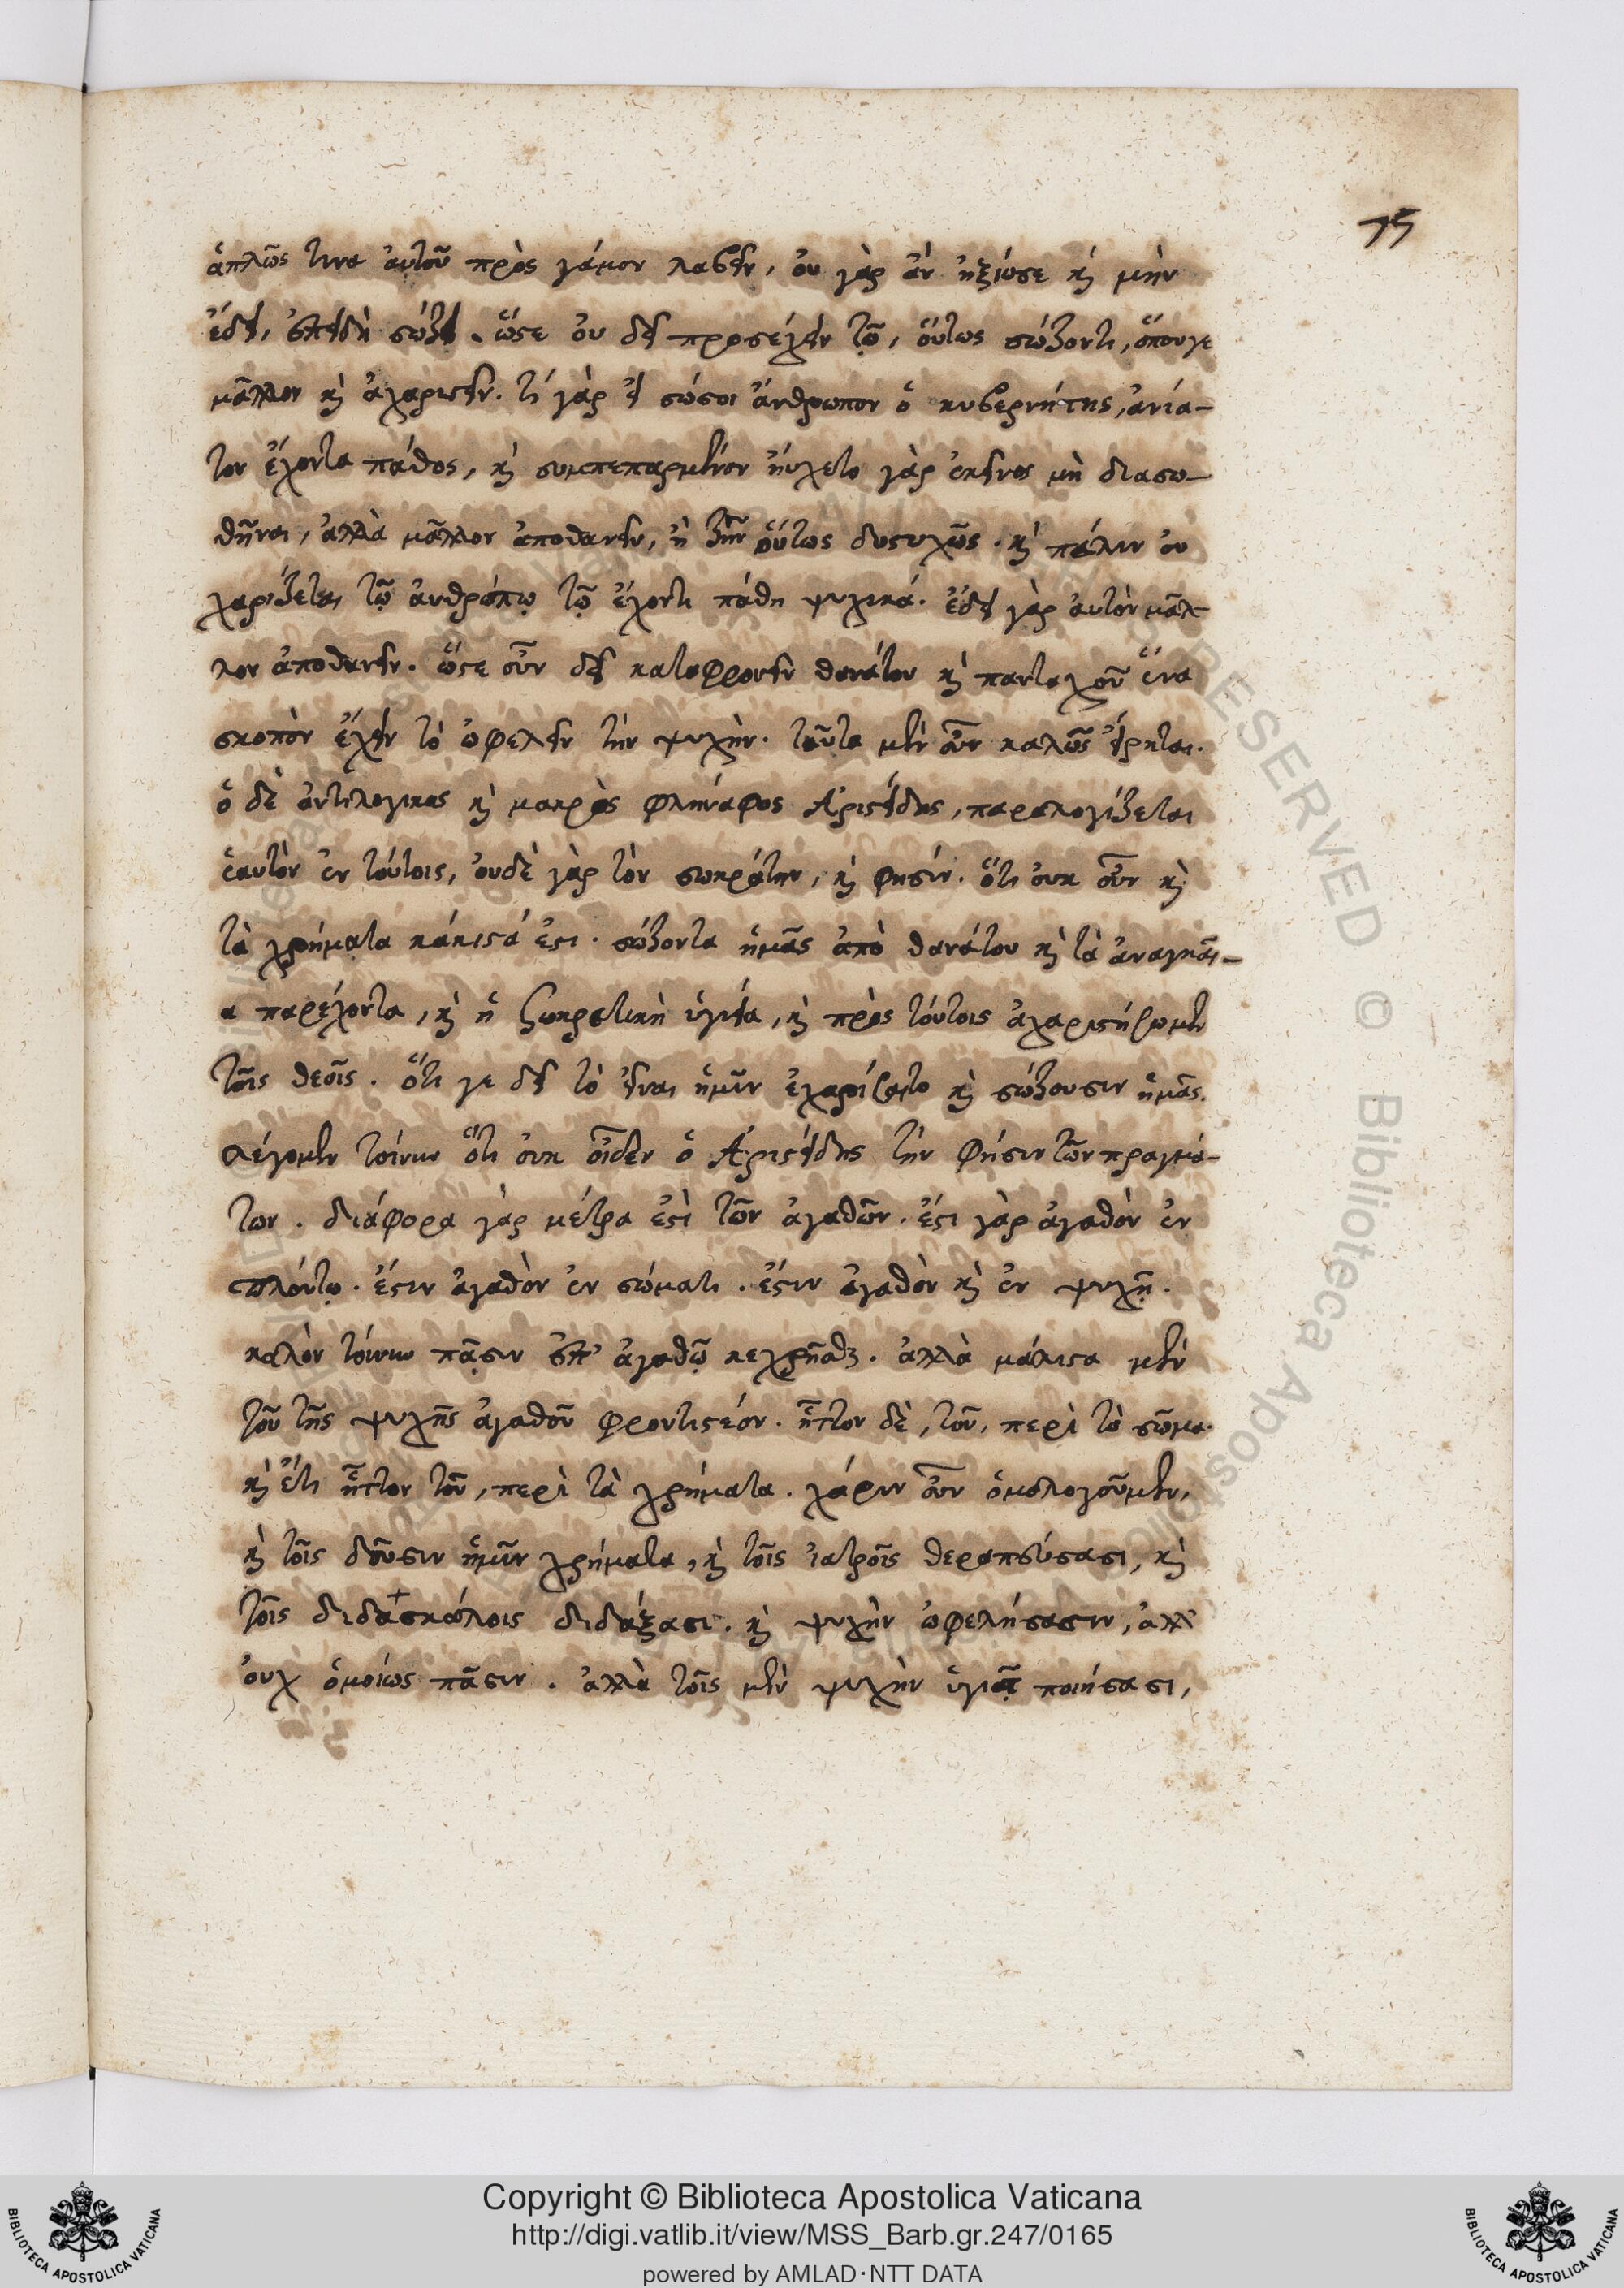 75
ἁπλῶς τινα αὐτοῦ πρὸς γάμον λαβεῖν, οὐ γὰρ ἂν ἠξίωσε κ̀ μὴν
ἔδει, ἐπειδὴ σώζει. ὥστε οὐ δεῖ προσέχειν τῷ, οὕτως σώζοντι, ὅπουγε
μᾶλλον κ̀ ἀχαριστεῖν. τί γὰρ εἰ σώσοι ἄνθρωπον ὁ κυβερνήτης, ἀνία-
τον ἔχοντα πάθος, κ̀ συμπεπαρμένον ηὔχετο γὰρ ἐκεῖνος μὴ διασω-
θῆναι, ἀλλὰ μᾶλλον ἀποθανεῖν, ἢ ζῆν οὕτως δυστυχῶς. κ̀ πάλιν οὐ
χαρίζεται τῷ ἀνθρώπῳ τῷ ἔχοντι πάθη ψυχικά. ἔδει γὰρ αὐτὸν μᾶλ-
λον ἀποθανεῖν. ὥστε οὖν δεῖ καταφρονεῖν θανάτου κ̀ πανταχοῦ ἕνα
σκοπὸν ἔχειν τὸ ὠφελεῖν τὴν ψυχήν. ταῦτα μὲν οὖν καλῶς εἴρηται.
ὁ δὲ ἀντιλογικὸς κ̀ μακρὸς φλήναφος Ἀριστείδης, παραλογίζεται
ἑαυτὸν ἐν τούτοις, οὐδὲ γὰρ τὸν σωκράτην, κ̀ φησίν. ὅτι οὐκ οὖν κ̀
τὰ χρήματα κάκιστά ἐστι. σώζοντα ἡμᾶς ἀπὸ θανάτου κ̀ τὰ ἀναγκαῖ-
α παρέχοντα, κ̀ ἡ Σωκρατικὴ ὑγιεία, κ̀ πρὸς τούτοις ἀχαριστήσωμεν
τοῖς θεοῖς. ὅτι γε δεῖ τὸ εἶναι ἡμῖν ἐχαρίσατο κ̀ σώζουσιν ἡμᾶς.
λέγομεν τοίνυν ὅτι οὐκ οἶδεν ὁ Ἀριστείδης τὴν φήσιν τῶν πραγμά-
των. διάφορα γὰρ μέτρα ἐστὶ τῶν ἀγαθῶν. ἔστι γὰρ ἀγαθὸν ἐν
πλούτῳ. ἔστιν ἀγαθὸν ἐν σώματι. ἔστιν ἀγαθὸν κ̀ ἐν ψυχῇ.
καλὸν τοίνυν πᾶσιν ἐπ’ ἀγαθῷ κεχρῆσθαι. ἀλλὰ μάλιστα μὲν
τοῦ τῆς ψυχῆς ἀγαθοῦ φροντιστέον. ἧττον δὲ, τοῦ, περὶ τὸ σῶμα.
κ̀ ἔτι ἧττον τοῦ, περὶ τὰ χρήματα. χάριν οὖν ὁμολογοῦμεν,
κ̀ τοῖς δοῦσιν ἡμῖν χρήματα, κ̀ τοῖς ἰατροῖς θεραπεύσασι, κ̀
τοῖς διδασκάλοις διδάξασι. κ̀ ψυχὴν ὠφελήσασιν, ἀλλ’
οὐχ ὁμοίως πᾶσιν. ἀλλὰ τοῖς μὲν ψυχὴν ὑγιᾶ ποιήσασι,
Copyright © Biblioteca Apostolica Vaticana
http://digi.vatlib.it/view/MSS_Barb.gr.247/0165
powered by AMLAD·NTT DATA